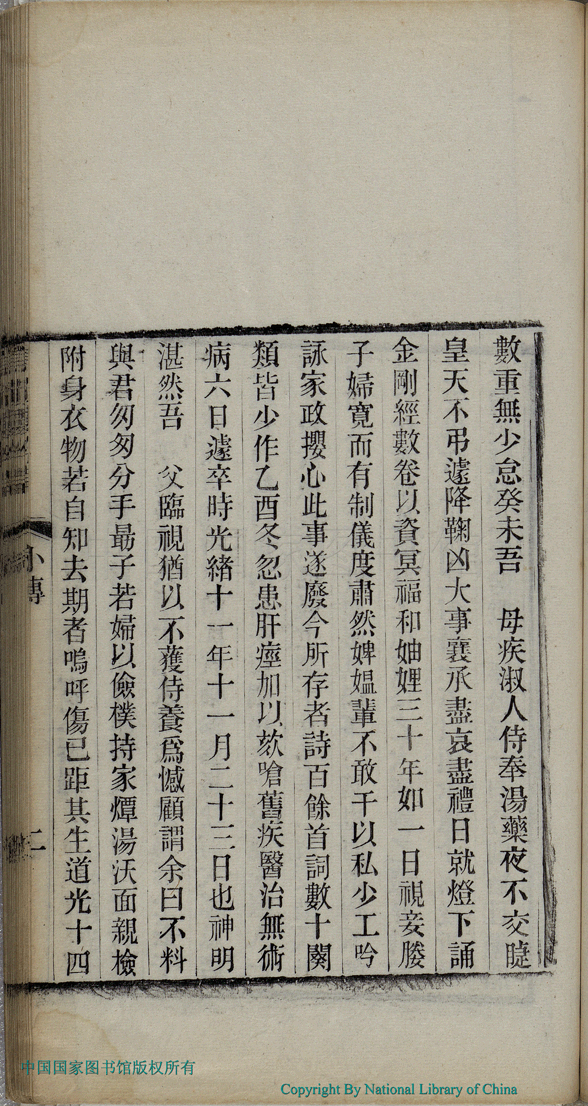 數重無少怠癸未吾　母疾淑人侍奉湯藥夜不交睫
皇天不弔遽降鞠凶大事襄承盡哀盡禮日就燈下誦
金剛經數卷以資冥福和妯娌三十年如一日視妾媵
子婦寬而有制儀度肅然婢媼輩不敢干以私少工吟
詠家政攖心此事遂廢今所存者詩百餘首詞數十闋
類皆少作乙酉冬忽患肝瘞加以欬嗆舊疾醫治無術
病六日遽卒時光緒十一年十一月二十三日也神明
湛然吾　父臨視猶以不獲侍養爲憾顧謂余曰不料
與君匆匆分手勗子若婦以儉樸持家燂湯沃面親檢
附身衣物若自知去期者嗚呼傷已距其生道光十四
小傳
二
中国国家图书馆版权所有
Copyright By National Library of China